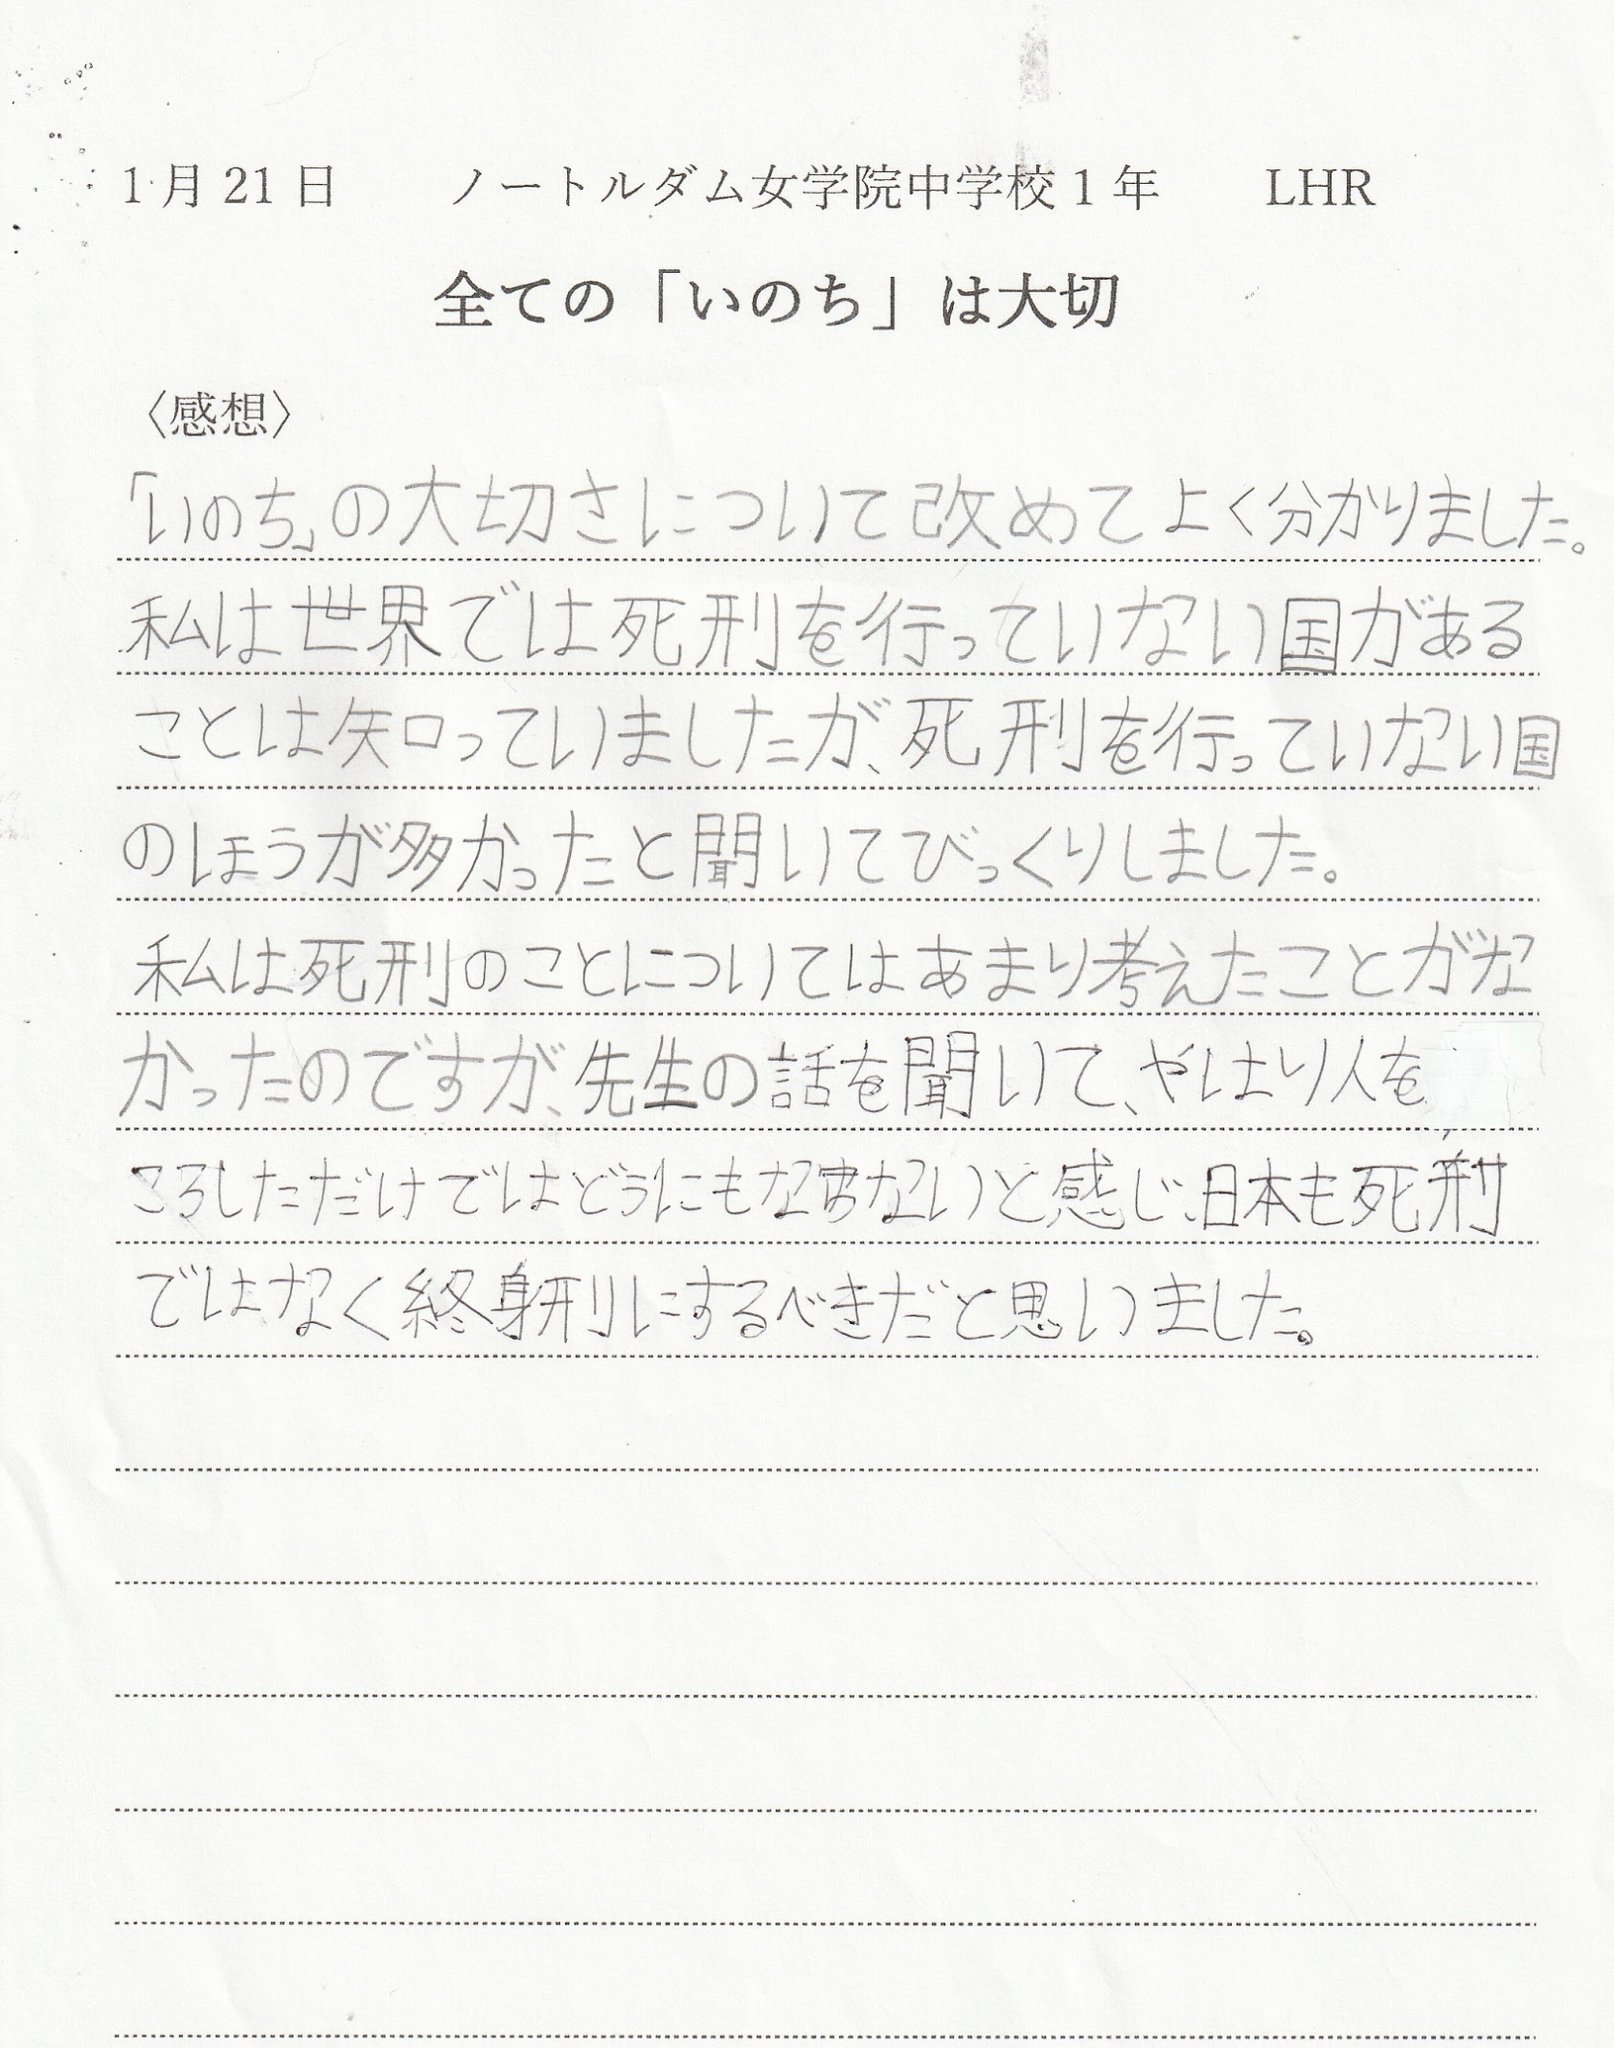 1月21日　ノートルダム女学院中学校1年　LHR
全ての「いのち」は大切
〈感想〉
「いのち」の大切さについて改めてよく分かりました。
私は世界では死刑を行っていない国がある
ことは知っていましたが、死刑を行っていない国
のほうが多かったと聞いてびっくりしました。
私は死刑のことについてはあまり考えたことがな
かったのですが、先生の話を聞いて、やはり人を
ころしただけではどうにもならないと感じ、日本も死刑
ではなく終身刑にするべきだと思いました。